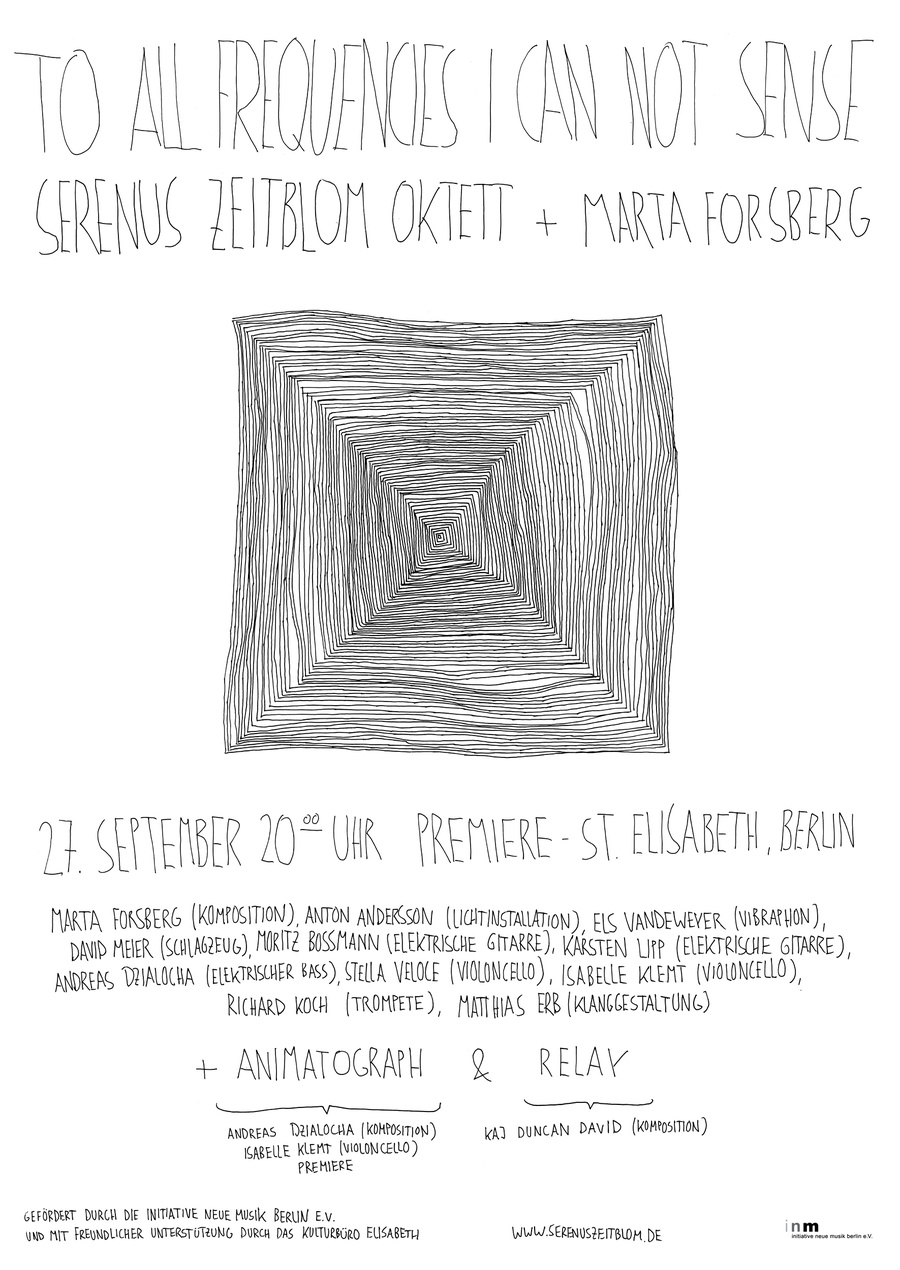 TO ALL FREQUENCIES I CAN NOT SENSE
SERENUS ZEITBLOM OKTETT + MARTA FORSBERG
27. SEPTEMBER 20⁰⁰ UHR PREMIERE - ST. ELISABETH, BERLIN
MARTA FORSBERG (KOMPOSITION), ANTON ANDERSSON (LICHTINSTALLATION), ELS VANDEWEYER (VIBRAPHON),
DAVID MEIER (SCHLAGZEUG), MORITZ BOSSMANN (ELEKTRISCHE GITARRE), KARSTEN LIPP (ELEKTRISCHE GITARRE),
ANDREAS DZIALOCHA (ELEKTRISCHER BASS), STELLA VELOCE (VIOLONCELLO), ISABELLE KLEMT (VIOLONCELLO),
RICHARD KOCH (TROMPETE), MATTHIAS ERB (KLANGGESTALTUNG)
+ ANIMATOGRAPH & RELAY
ANDREAS DZIALOCHA (KOMPOSITION)
ISABELLE KLEMT (VIOLONCELLO)
PREMIERE
KAJ DUNCAN DAVID (KOMPOSITION)
GEFÖRDERT DURCH DIE INITIATIVE NEUE MUSIK BERLIN E.V.
UND MIT FREUNDLICHER UNTERSTÜTZUNG DURCH DAS KULTURBÜRO ELISABETH
WWW.SERENUSZEITBLOM.DE
inm
initiative neue musik berlin e.V.